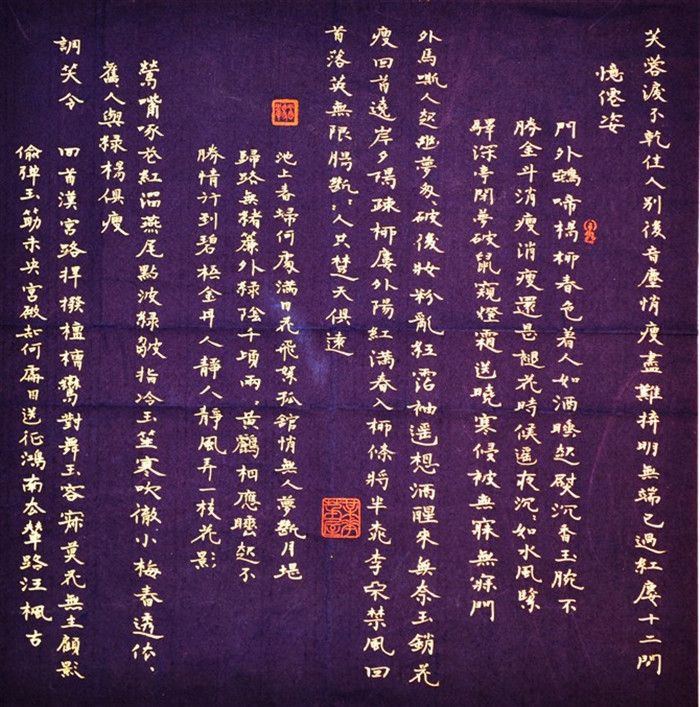 芙蓉淚不乾佳人別後音塵悄瘦盡難拚明無端已過紅樓十二間
憶僊姿
門外鴉啼楊柳春色著人如酒睡起熨沉香玉腕不
勝金斗消瘦消瘦還是褪花時候遙夜沉：如水風緊
驛深亭閉夢破鼠窺燈霜送曉寒侵被無寐無寐門
外馬嘶人起幽夢匆、破後妝粉亂紅沾袖遙想酒醒來無奈玉銷花
瘦回首遠岸夕陽疎柳樓外陽紅滿春入柳條將半桃李禁風回
首落英無限腸斷：人共楚天俱遠
池上春歸何處滿目花飛絮孤館悄無人夢斷月堤
歸路無緒簾外綠陰千頃雨、黃鸝相應睡起不
勝情行到碧梧金井人靜人靜風弄一枝花影
鶯嘴啄花紅溜燕尾點波綠皺指冷玉笙寒吹徹小梅春透依、
舊人與綠楊俱瘦
調笑令 回首漢宮路捍撥檀槽鸞對舞玉容寂寞花無主顧影
偷彈玉筯未央宮殿知何處目送征鴻南去輦路江楓古